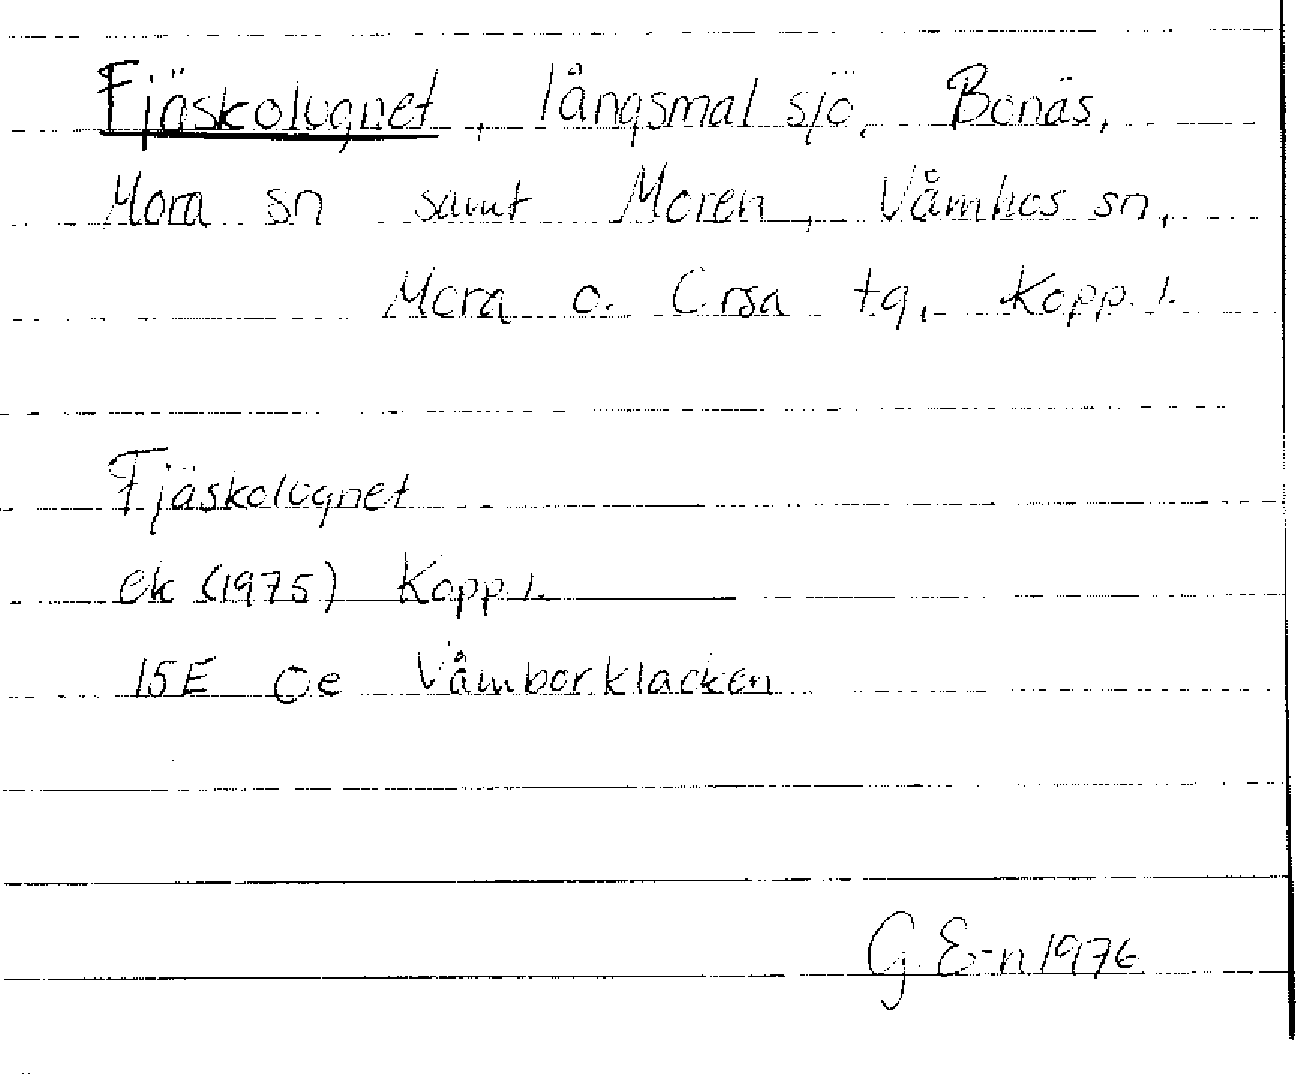 Fjäskolugnet, långsmal sjö, Bonäs,
Mora sn samt Moren, Våmhus sn,
Mora o. Orsa tg, Kopp. l.
Fjäskolugnet
ek (1975) Kopp. l.
15E 0e Våmborklacken
G. E-n 1976